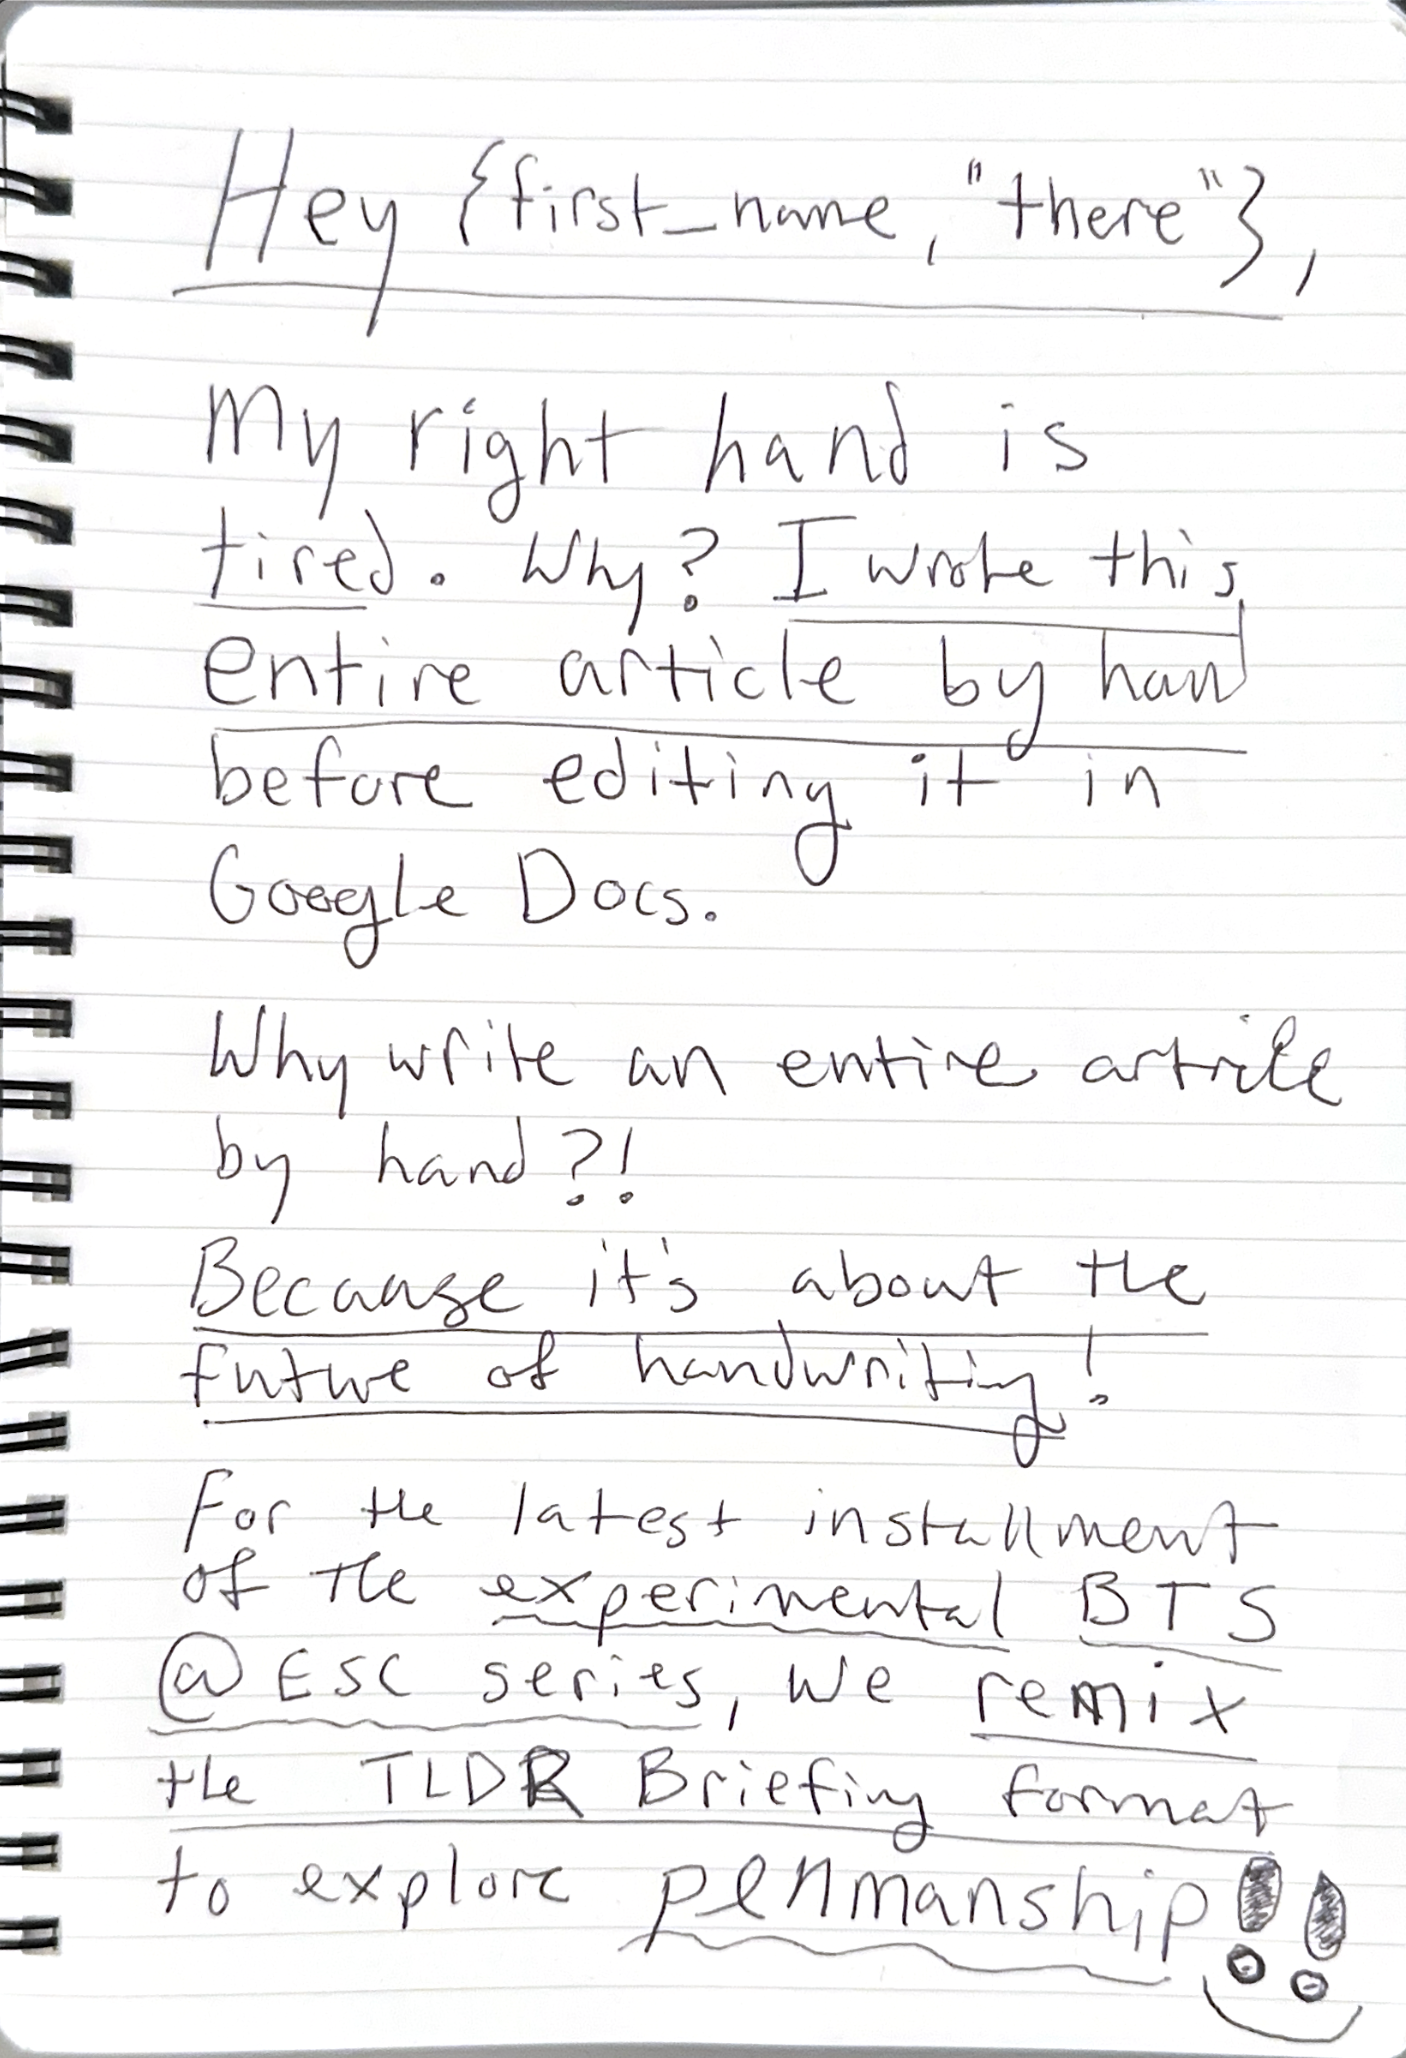 Hey {first_name, "there"},
My right hand is
tired. Why? I wrote this
entire article by hand
before editing it in
Google Docs.
Why write an entire article
by hand?!
Because it's about the
future of handwriting!
For the latest installment
of the experimental BTS
@ ESC series, we remix
the TLDR Briefing format
to explore penmanship!!